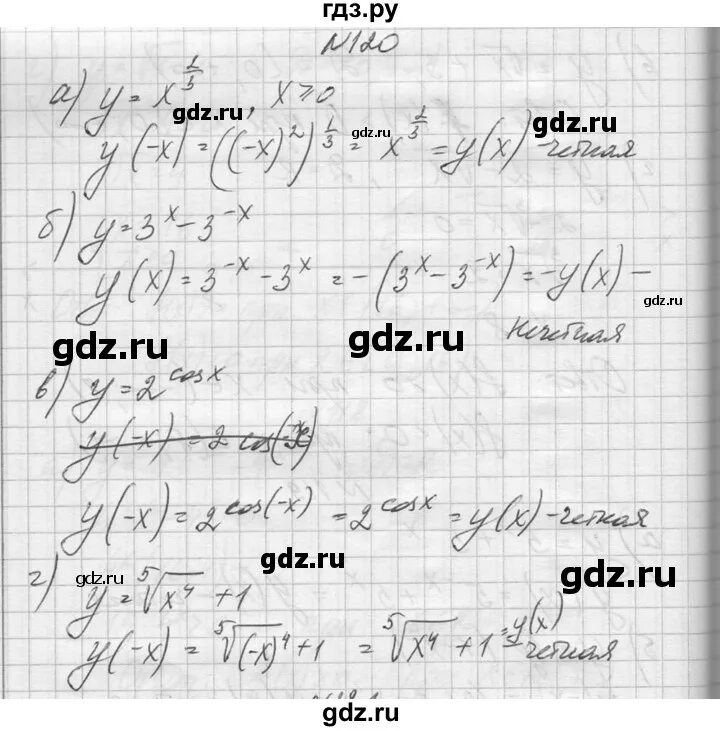 гдз.ру
N120
а) y = x^{1/3}, x ≥ 0
y(-x) = ((-x)^2)^{1/3} = x^{2/3} = y(x) - четная
б) y = 3^x - 3^{-x}
y(x) = 3^{-x} - 3^x = -(3^x - 3^{-x}) = -y(x) -
нечетная
в) y = 2^{cos x}
y(-x) = 2 cos(-x)
y(-x) = 2^{cos(-x)} = 2^{cos x} = y(x) - четная
г) y = \sqrt[5]{x^4} + 1
y(-x) = \sqrt[5]{(-x)^4} + 1 = \sqrt[5]{x^4} + 1 = y(x) - четная
gdz.ru
gdz.ru
gdz.ru
gdz.ru
gdz.ru
gdz.ru
gdz.ru
gdz.ru
gdz.ru
gdz.ru
gdz.ru
gdz.ru